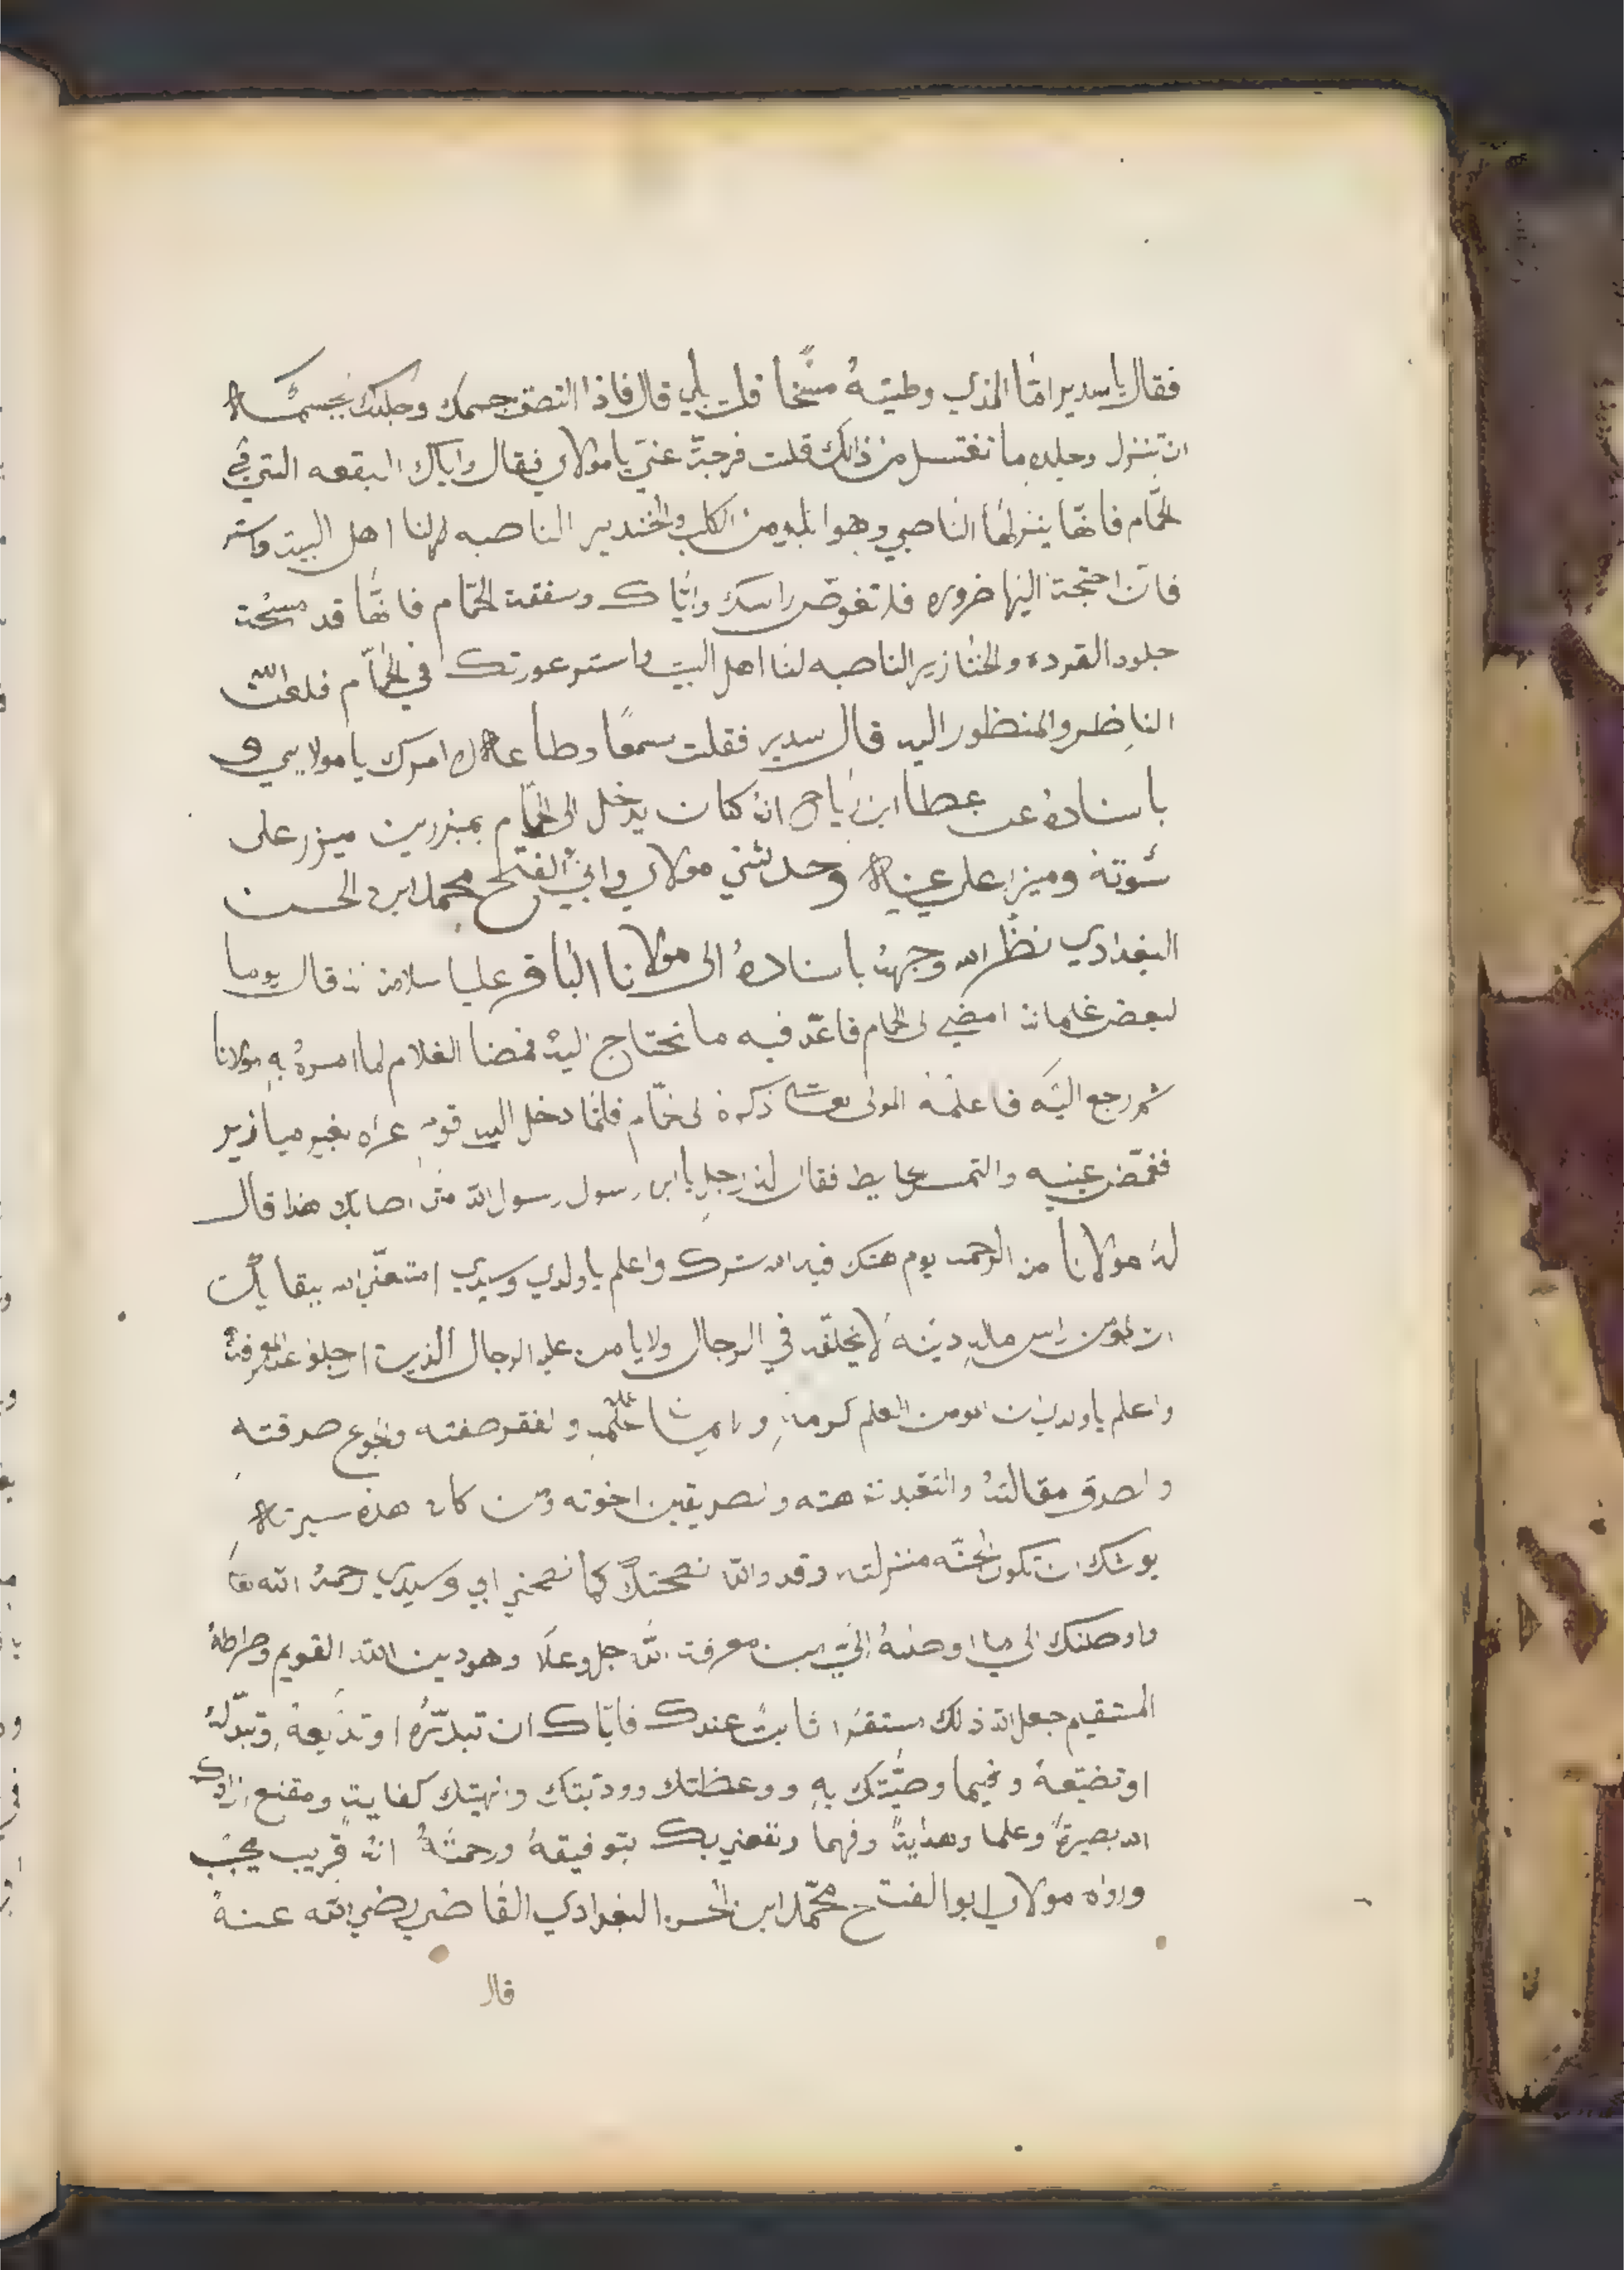 فقال يا سدير امّا الذي وطيتهُ مسخاً قلت بلي قال فاذا التصق جسمك وجلدك بجسمه
ان تنزل وجلده ما تغتسل من ذالك قلت فرجة عني يا مولاي فقال واياك البقعه التي في
الحمّام فانها ينزلها الناصبي وهوا من الكلب والخنزير الناصبه لنا اهل البيت
فان احتجة اليها ضروره فلا تغوص راسك وايّاك وسفقة الحمّام فانهّا قد مسخة
جلود القرده والخنازير الناصبه لنا اهل البيت واستر عورتك في الحمّام فلعن الله
الناظر والمنظور اليه قال سدير فقلت سمعًا وطاعه لامرك يا مولايي و
باسناده عن عطا ابن رياح انه كان يدخل الى الحمّام بميزرين ميزر على
سوته وميزر على عينيه وحدثني مولاي وابي الفتح محمد ابن الحسن
البغدادي نظر الله وجهه باسناده الى مولانا الباقر علينا سلامه انه قال يوما
لبعض غلمانه امضي لى الحمام فاعدّ فيه ما نحتاج اليه فمضا الغلام لما امره به مولانا
ثم رجع اليه فاعلمه المولى ذكره لى حمّام فلما دخل اليه قوم عراه بغير ميازير
فغمّض عينيه والتمس الحايط فقال له رجل يا ابن رسول رسول الله متى اصابك هذا قال
له مولانا من الرحمه يوم هتك فيه الله سترك واعلم يا ولدي وسيدي امتعني الله ببقايك
ان المومن راس ماله دينه لا يخلفه في الرحال ولا يامن عليه الرجال الذين
واعلم يا ولدي ان المومن العلم والفقر صفته والجوع صدقته
والصدق مقالته همته والصديقين اخوته ومن كان هذه سيرته
يوشك ان تكون الجنّه منزلته وقد والله نصحتك كما نصحني ابي وسيدي رحمه الله
واوصلتك الى ما اوصله الي من معرفة الله جل وعلا وهو دين الله القويم وصراطه
المستقيم جعل الله ذلك مستقرا ثابت عندك فايّاك ان تبدّره او تذيعه وتبدّله
او تضيّعه وفيما وصّيتك به ووعظتك وودّبتك وانهيتك كفاية ومقنع زادك
الله بصيرة وعلما وهداية وفهما ونفعني بك بتوفيقه ورحمته انه قريب مجيب
ورواه مولاي ابو الفتح محمّد ابن الحسن البغدادي القاضي رضي الله عنه
قال